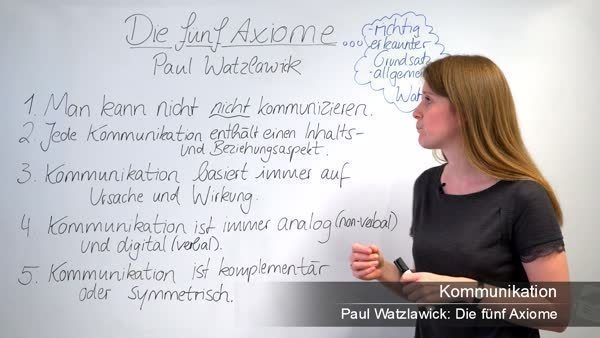 Die fünf Axiome
Paul Watzlawick
-richtig
erkannter
Grundsatz
-allgemein
1. Man kann nicht nicht kommunizieren.
2 Jede Kommunikation enthält einen Inhalts-
und Beziehungsaspekt.
3. Kommunikation basiert immer auf
Ursache und Wirkung.
4 Kommunikation ist immer analog (non-verbal)
und digital (verbal).
5. Kommunikation ist komplementär
oder symmetrisch.
Kommunikation
Paul Watzlawick: Die fünf Axiome